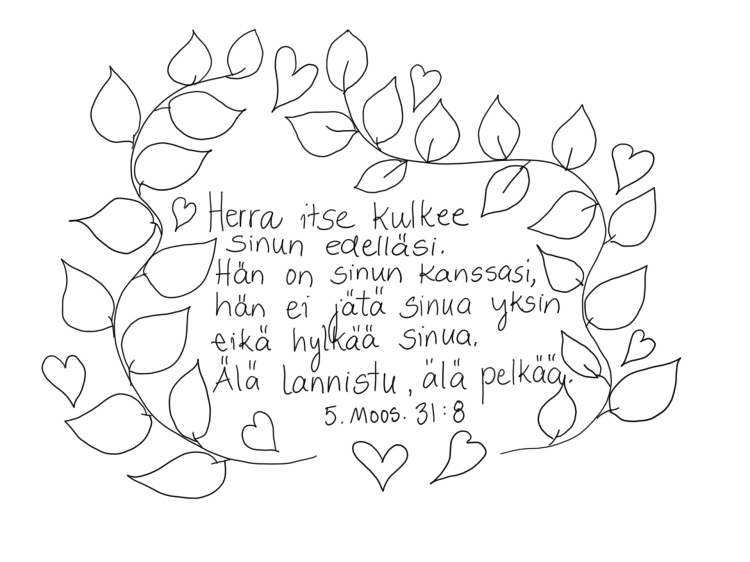 Herra itse kulkee
sinun edelläsi.
Hän on sinun kanssasi,
hän ei jätä sinua yksin
eikä hylkää sinua.
Älä lannistu, älä pelkää.
5. Moos. 31:8